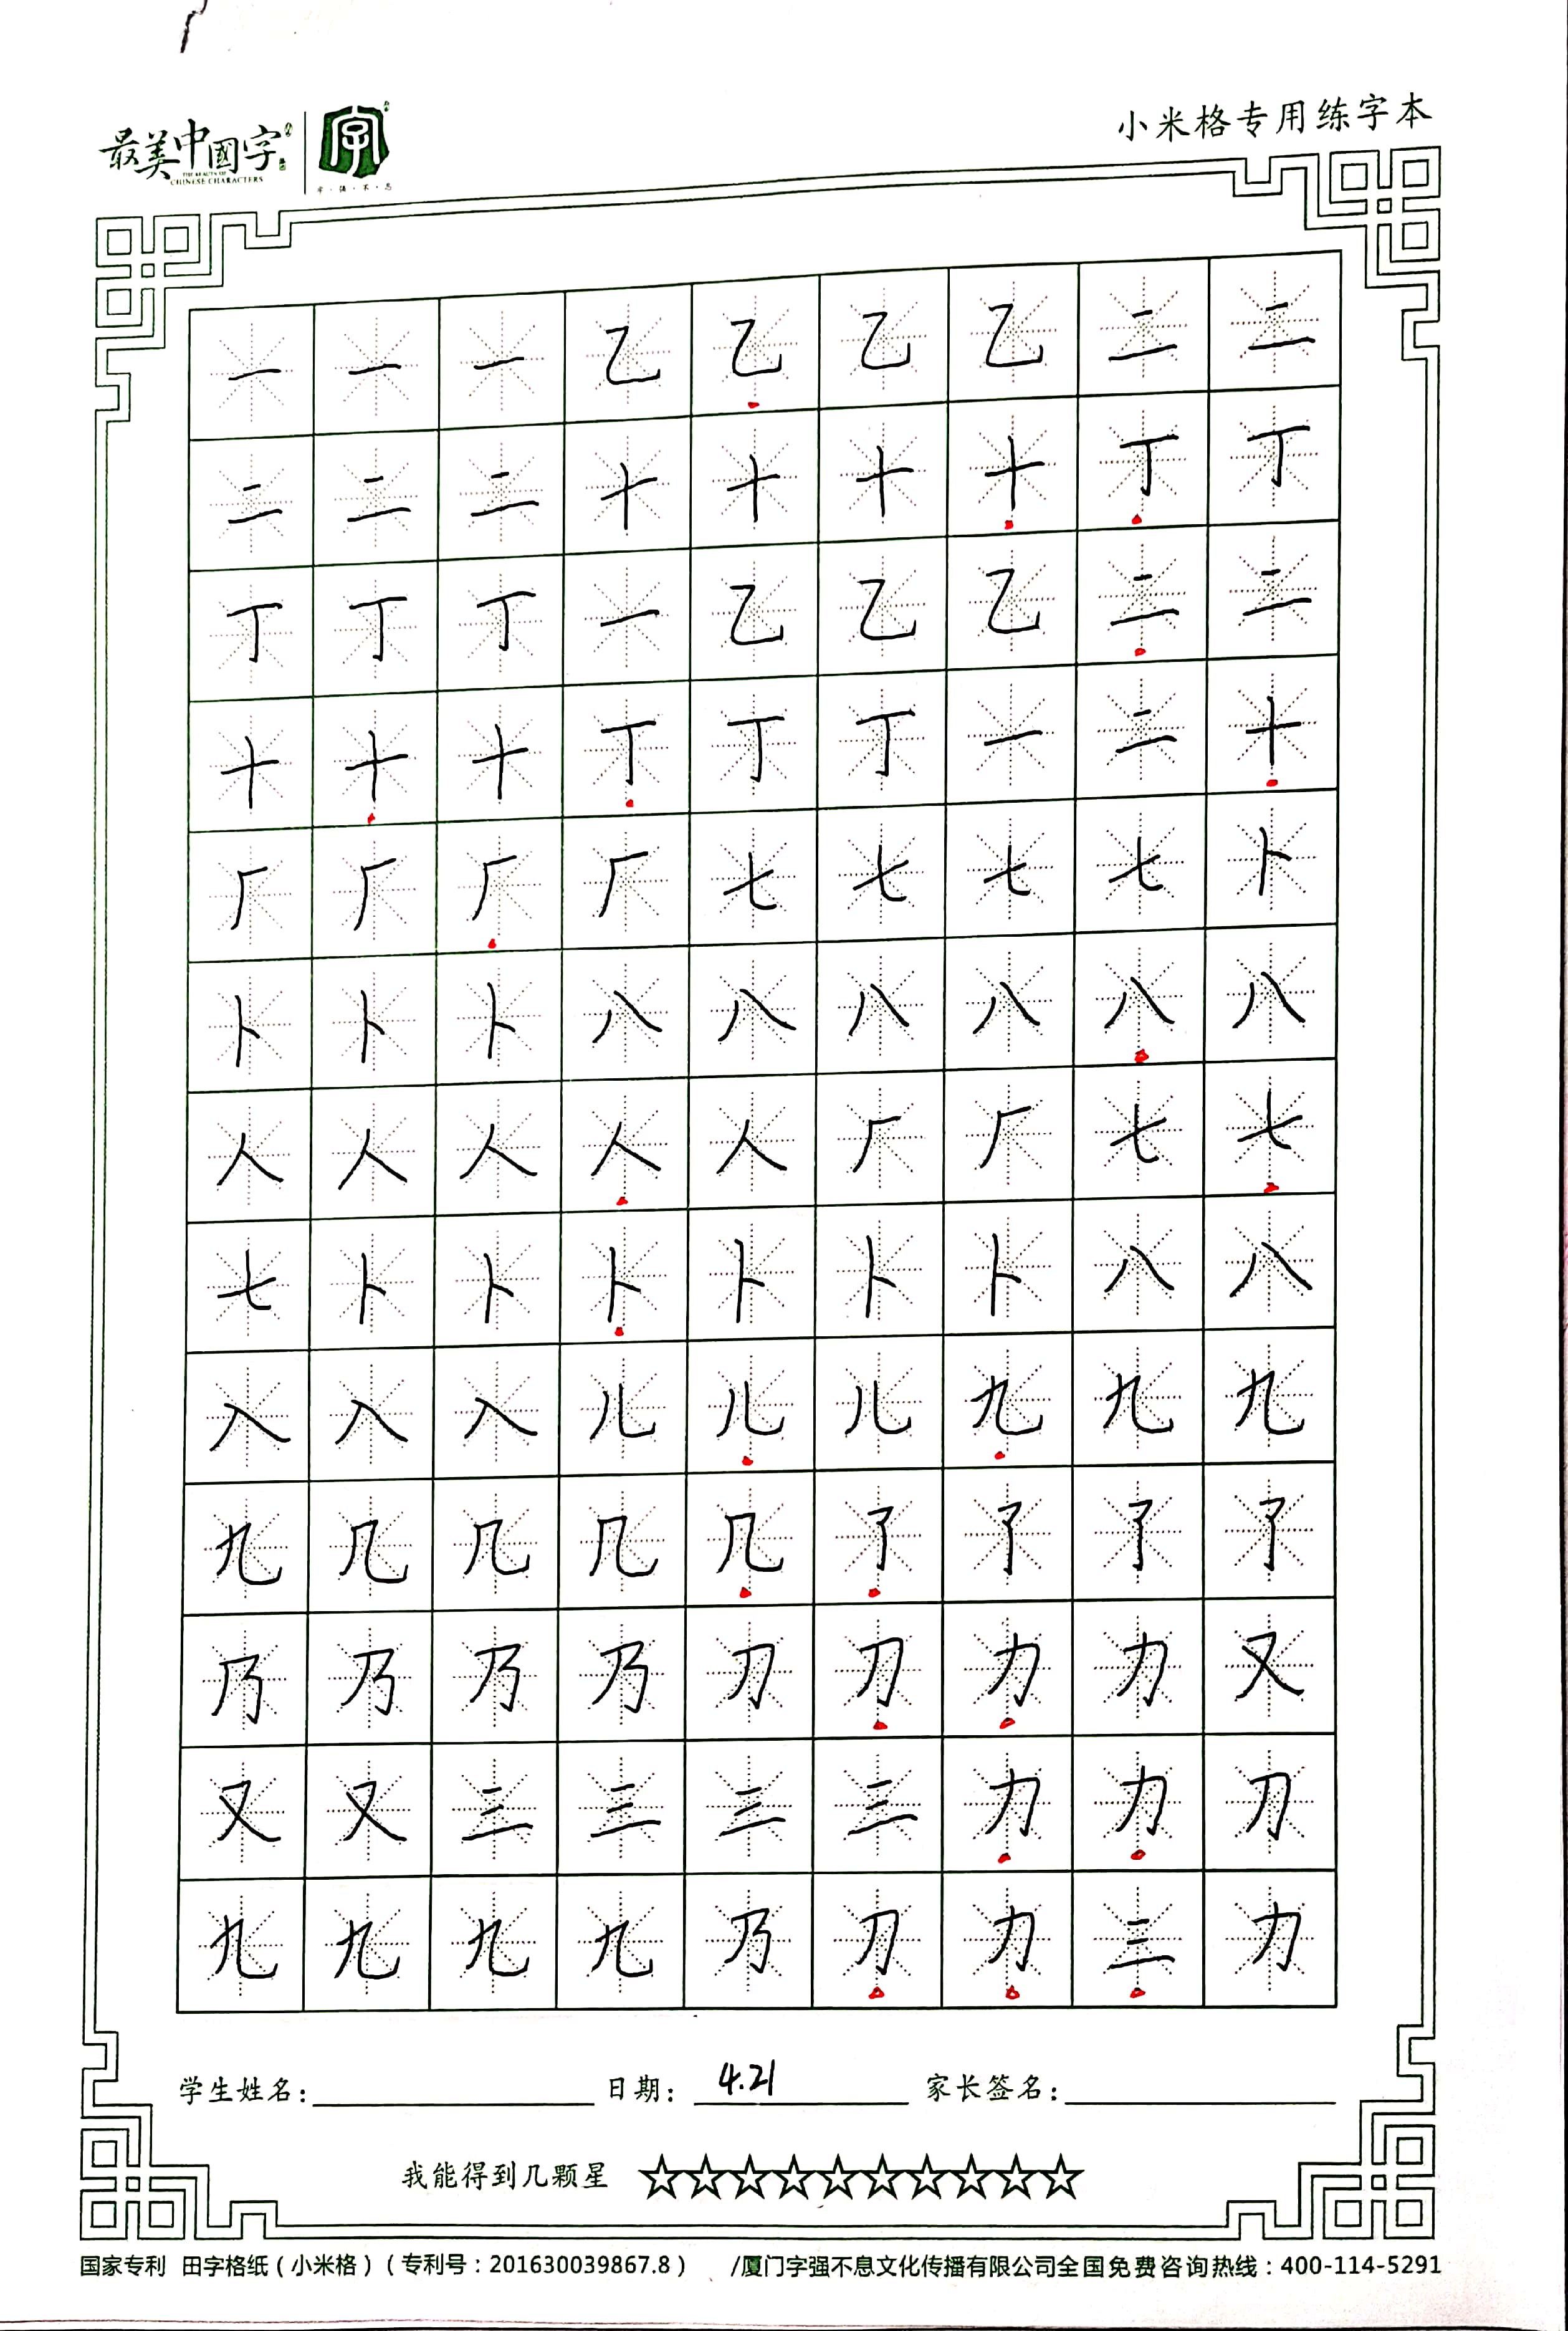 最美中國字
THE BEAUTY OF
CHINESE CHARACTERS
字
字·强·不·息
小米格专用练字本
一 一 一 乙 乙 乙 乙 二 二
二 二 二 十 十 十 十 丁 丁
丁 丁 丁 一 乙 乙 乙 二 二
十 十 十 丁 丁 丁 一 二 十
厂 厂 厂 厂 七 七 七 七 卜
卜 卜 卜 八 八 八 八 八 八
人 人 人 人 人 厂 厂 七 七
七 卜 卜 卜 卜 卜 卜 八 八
入 入 入 儿 儿 儿 九 九 九
九 几 几 几 几 了 了 了 了
乃 乃 乃 乃 刀 刀 力 力 又
又 又 三 三 三 三 力 力 刀
九 九 九 九 乃 刀 力 三 力
学生姓名: 日期: 4.21 家长签名:
我能得到几颗星 ☆☆☆☆☆☆☆☆☆☆
国家专利 田字格纸(小米格)(专利号:201630039867.8) /厦门字强不息文化传播有限公司全国免费咨询热线:400-114-5291